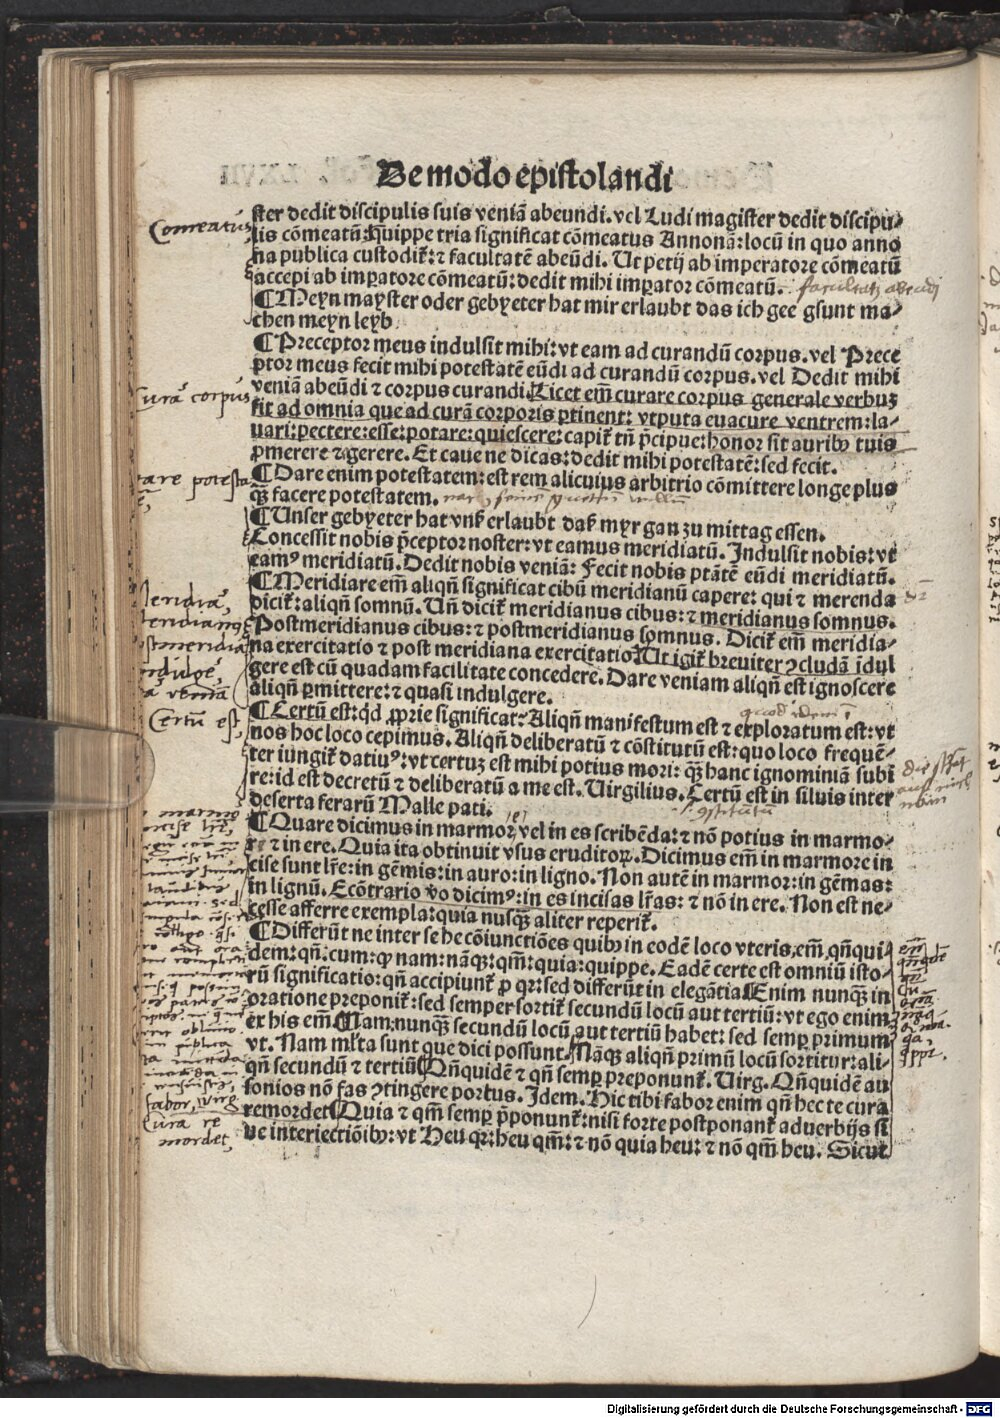 De modo epistolandi
ster dedit discipulis suis veniā abeundi. vel Ludi magister dedit discipu-
lis cōmeatū: quippe tria significat cōmeatus Annonā: locū in quo anno
na publica custodit᷑: ⁊ facultatē abeūdi. Ut petij ab imperatore cōmeatū
accepi ab imꝑatore cōmeatū: dedit mihi imꝑator cōmeatū.
¶ Meyn mayster oder gebyeter hat mir erlaubt das ich gee gsunt ma-
chen meyn leyb
¶ Preceptor meus indulsit mihi: vt eam ad curandū corpus. vel Prece
ptor meus fecit mihi potestatē eūdi ad curandū corpus. vel Dedit mihi
veniā abeūdi ⁊ corpus curandi. Licet em̄ curare corpus generale verbuꝫ
sit ad omnia que ad curā corporis ꝑtinent: vtputa euacure ventrem: la-
uari: pectere: esse: potare: quiescere: capit᷑ tn̄ p̄cipue: honor sit auribꝰ tuis
ꝓ merere ⁊ gerere. Et caue ne dicas: dedit mihi potestatē: sed fecit.
¶ Dare enim potestatem: est rem alicuius arbitrio cōmittere longe plus
qꝫ facere potestatem.
¶ Unser gebyeter hat vnß erlaubt daß myr gan zu mittag essen.
Concessit nobis p̄ceptor noster: vt eamus meridiatū. Indulsit nobis: vt
eamꝰ meridiatū. Dedit nobis veniā: Fecit nobis ptātē eūdi meridiatū.
¶ Meridiare em̄ aliqn̄ significat cibū meridianū capere: qui ⁊ merenda
dicit᷑: aliqn̄ somnū. Un̄ dicit᷑ meridianus cibus: ⁊ meridianus somnus.
Postmeridianus cibus: ⁊ postmeridianus somnus. Dicit᷑ em̄ meridia-
na exercitatio ⁊ post meridiana exercitatio. Ut igit᷑ breuiter ꝯcludā idul
gere est cū quadam facilitate concedere. Dare veniam aliqn̄ est ignoscere
aliqn̄ ꝑmittere: ⁊ quasi indulgere.
¶ Certū est: qd̄ ꝓprie significat: Aliqn̄ manifestum est ⁊ exploratum est: vt
nos hoc loco cepimus. Aliqn̄ deliberatū ⁊ cōstitutū est: quo loco frequē-
ter iungit᷑ datiuꝰ: vt certuꝫ est mihi potius mori: qꝫ hanc ignominiā subi
re: id est decretū ⁊ deliberatū a me est. Uirgilius. Certū est in siluis inter
deserta ferarū Malle pati.
¶ Quare dicimus in marmor, vel in es scribēda: ⁊ nō potius in marmo-
re ⁊ in ere. Quia ita obtinuit vsus eruditoꝝ. Dicimus em̄ in marmore in
cise sunt lr̄e: in gēmis: in auro: in ligno. Non autē in marmor: in gēmas:
in lignū. Ecōtrario v̄o dicimꝰ: in es incisas lr̄as: ⁊ nō in ere. Non est ne-
cesse afferre exempla: quia nusqꝫ aliter reperit᷑.
¶ Differūt ne inter se he cōiunctiōes quibꝰ in eodē loco vteris, em̄, qn̄qui
dem: qn̄: cum: ꝙ nam: nāqꝫ: qm̄: quia: quippe. Eadē certe est omniū isto-
rū significatio: qn̄ accipiunt᷑ ꝓ qr: sed differūt in elegātia. Enim nunqꝫ in
oratione preponit᷑: sed semper sortit᷑ secundū locū aut tertiū: vt ego enim
ex his em̄. Nam nunqꝫ secundū locū aut tertiū habet: sed semꝑ primum
vt. Nam ml̄ta sunt que dici possunt. Nāqꝫ aliqn̄ primū locū sortitur: ali-
qn̄ secundū ⁊ tertiū. Qn̄quidē ⁊ qn̄ semꝑ preponunt᷑. Uirg. Qn̄quidē au
sonios nō fas ꝯtingere portus. Idem. Hic tibi fabor enim qn̄ hec te cura
remordet. Quia ⁊ qm̄ semꝑ p̄ponunt᷑: nisi forte postponant᷑ aduerbijs si
ue interiectiōibꝰ: vt Heu qr: heu qm̄: ⁊ nō quia heu: ⁊ nō qm̄ heu. Sicut
Comeatus
facultatē abeūdi
Curā corpus
Certū est,
quod idem ē
ꝯstitutū
fabor, Virg
Cura re
mordet
Digitalisierung gefördert durch die Deutsche Forschungsgemeinschaft - DFG